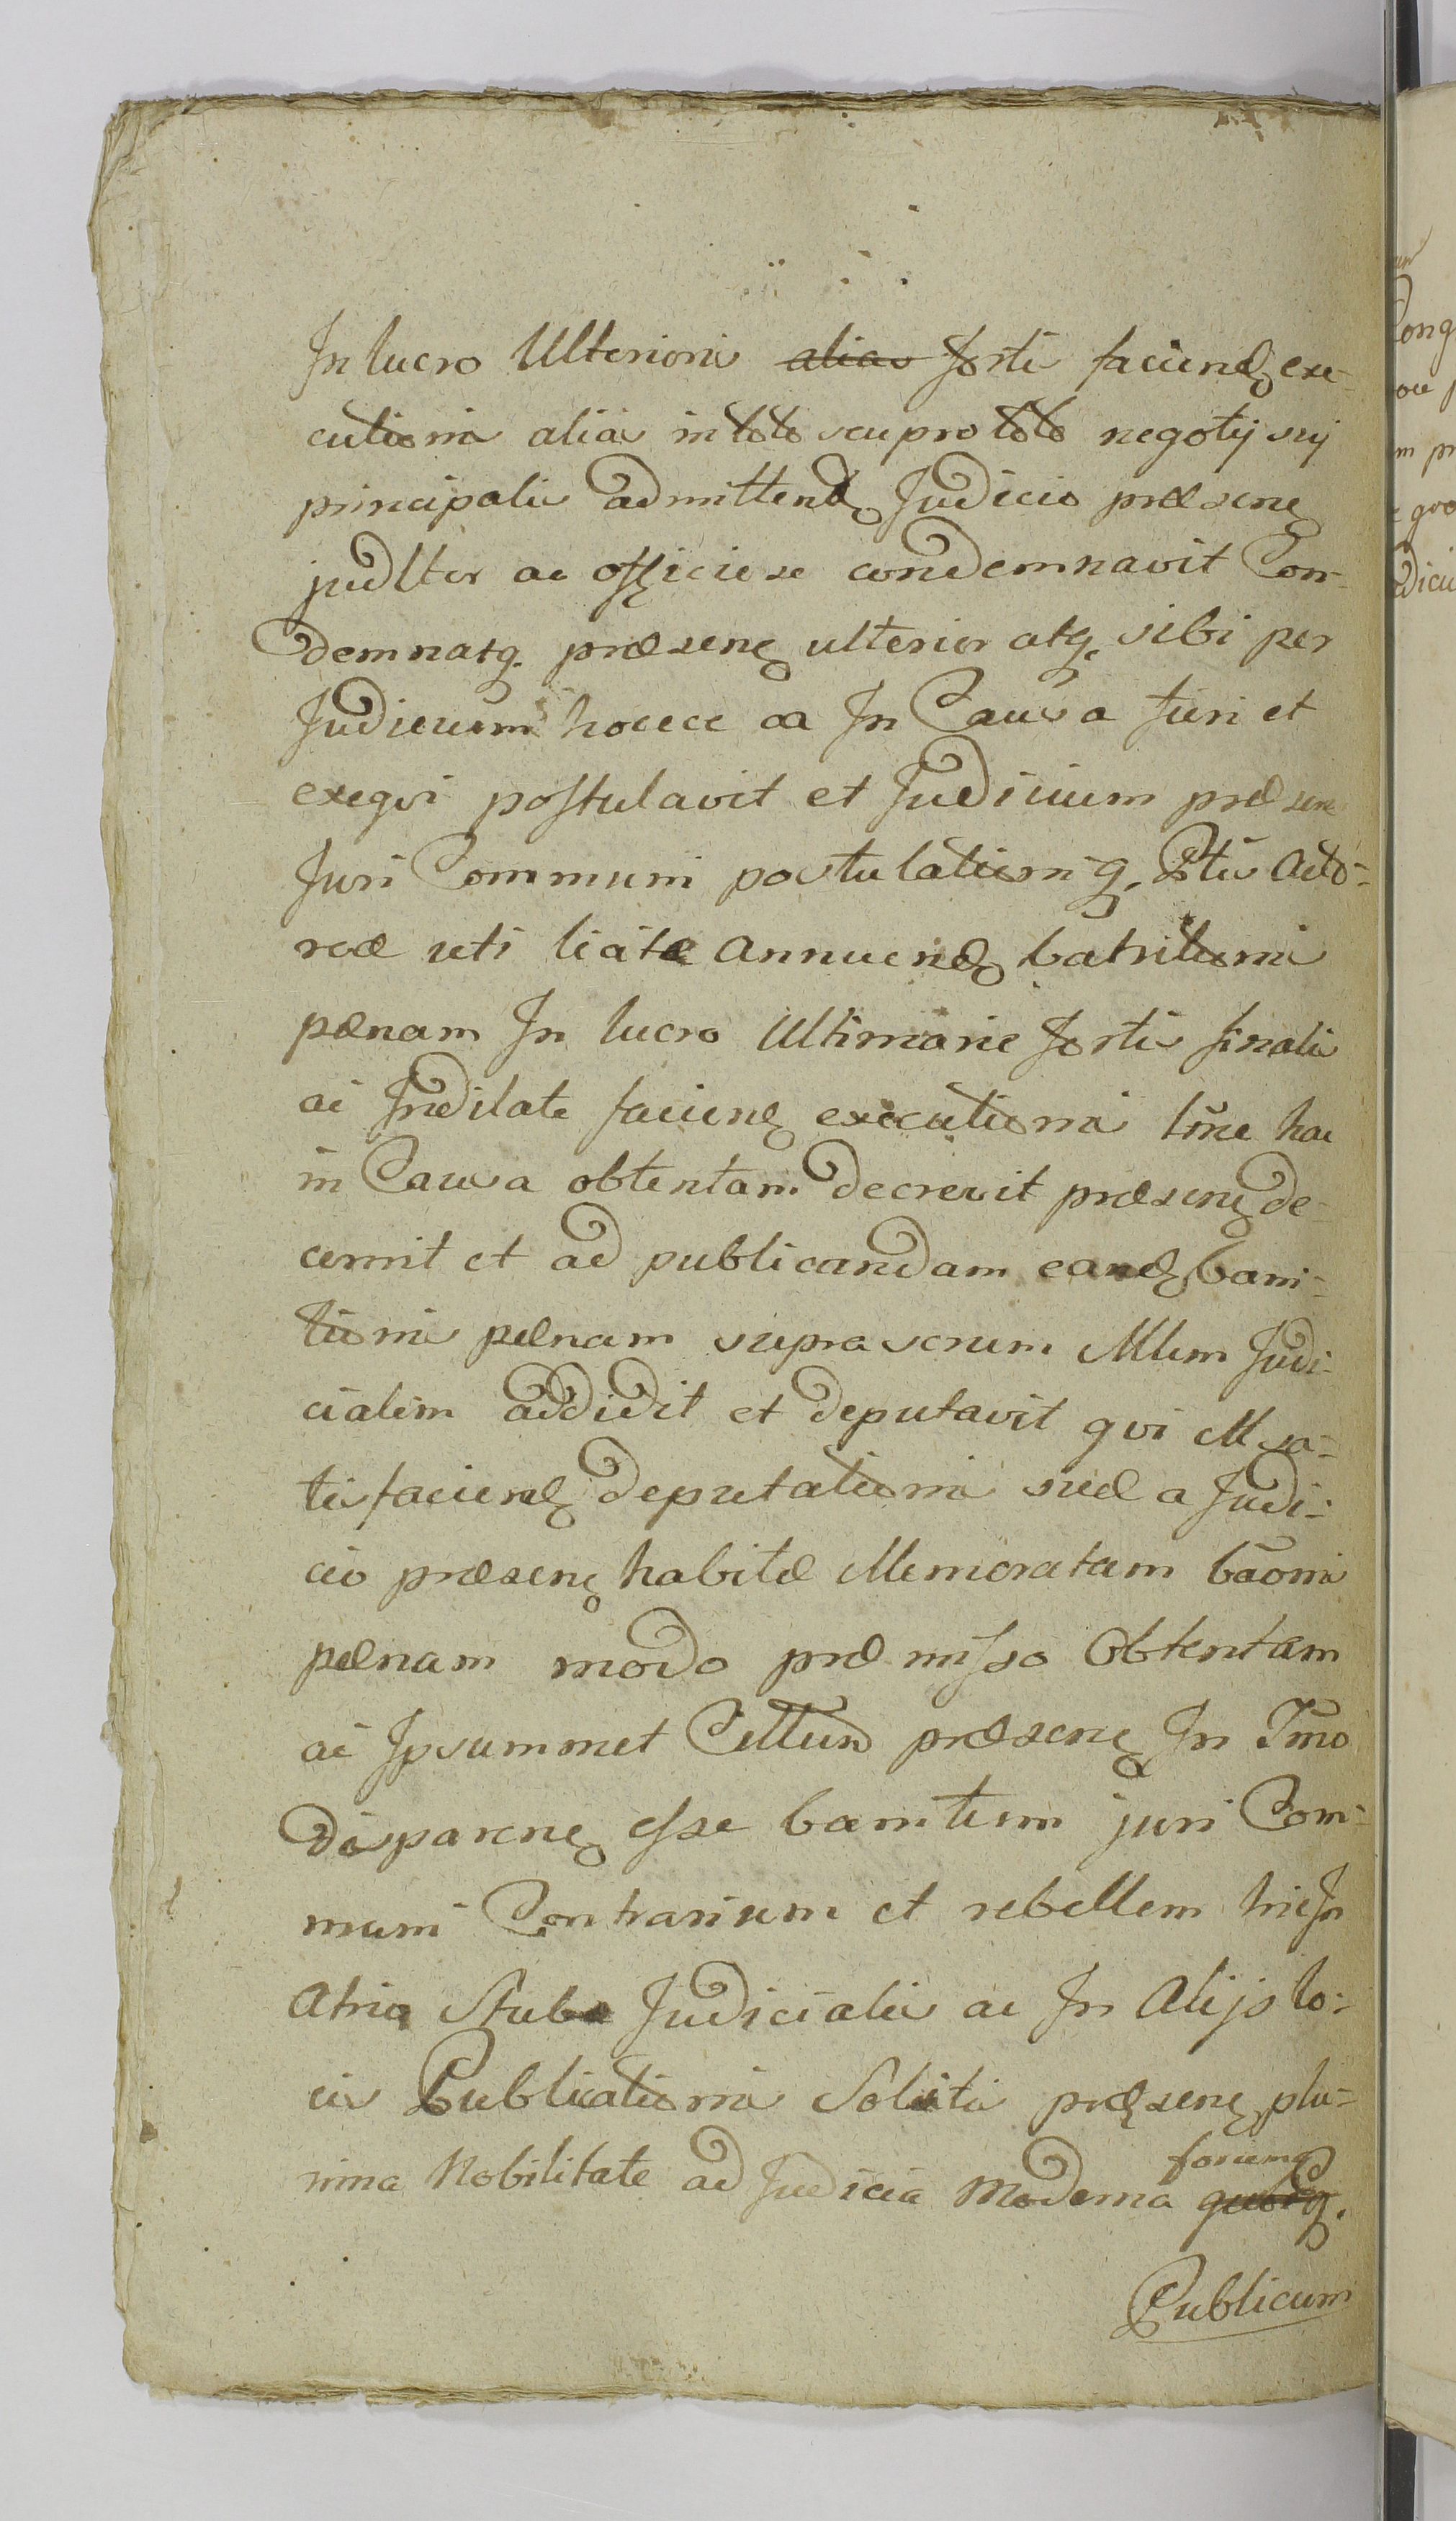 In lucro Ulterioris alias fortis faciend exe-
cutionis alias in toto seu pro toto negotij suj
principalis admittend Judicio præsen
judlter ac officiose condemnavit Con-
demnatq. præsen ulterior atq. sibi per
Judicium hocce ca In Causa fieri et
exeqvi postulavit et Judicium præsen
Juri Communi postulationiq. Ptis Acto-
reæ uti licitæ annuend banitionis
pænam In lucro Ultimarie fortis finalis
ac Indilate facien executionis tme hac
in Causa obtentam decrevit præsen de-
cernit et ad publicandam eand bani-
tionis pænam suprascrum Mlem Judi-
cialem addidit et deputavit qvi M sa-
tisfaciend deputationis suæ a Judi-
cio præsen habitæ Memoratam baonis
pænam modo præmisso Obtentam
ac Ipsummet Cittum præsen In Tmo
disparen esse banitum juri Com-
muni Contrarium et rebellem hic In
Atrio Stubæ Judicialis ac In Alijs lo-
cis Publicationis Solitis præsen plu-
rima Nobilitate ad Judicia Moderna quorq.
Publicum